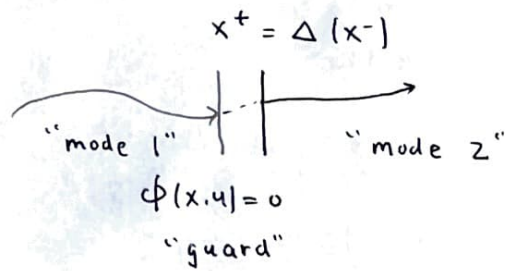 x⁺ = Δ (x⁻)
"mode 1"
"mode 2"
ϕ(x,u)=0
"guard"